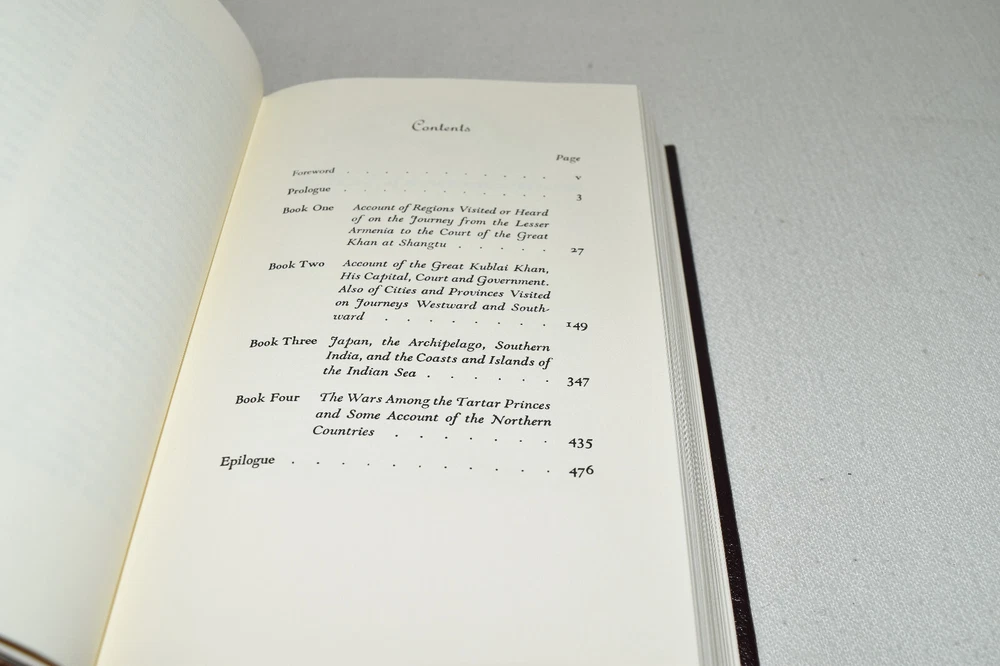 Contents
Page
Foreword . . . . . . . . . . . v
Prologue . . . . . . . . . . . 3
Book One Account of Regions Visited or Heard
of on the Journey from the Lesser
Armenia to the Court of the Great
Khan at Shangtu . . . . . 27
Book Two Account of the Great Kublai Khan,
His Capital, Court and Government.
Also of Cities and Provinces Visited
on Journeys Westward and South-
ward . . . . . . . . 149
Book Three Japan, the Archipelago, Southern
India, and the Coasts and Islands of
the Indian Sea . . . . . . 347
Book Four The Wars Among the Tartar Princes
and Some Account of the Northern
Countries . . . . . . . 435
Epilogue . . . . . . . . . . . 476